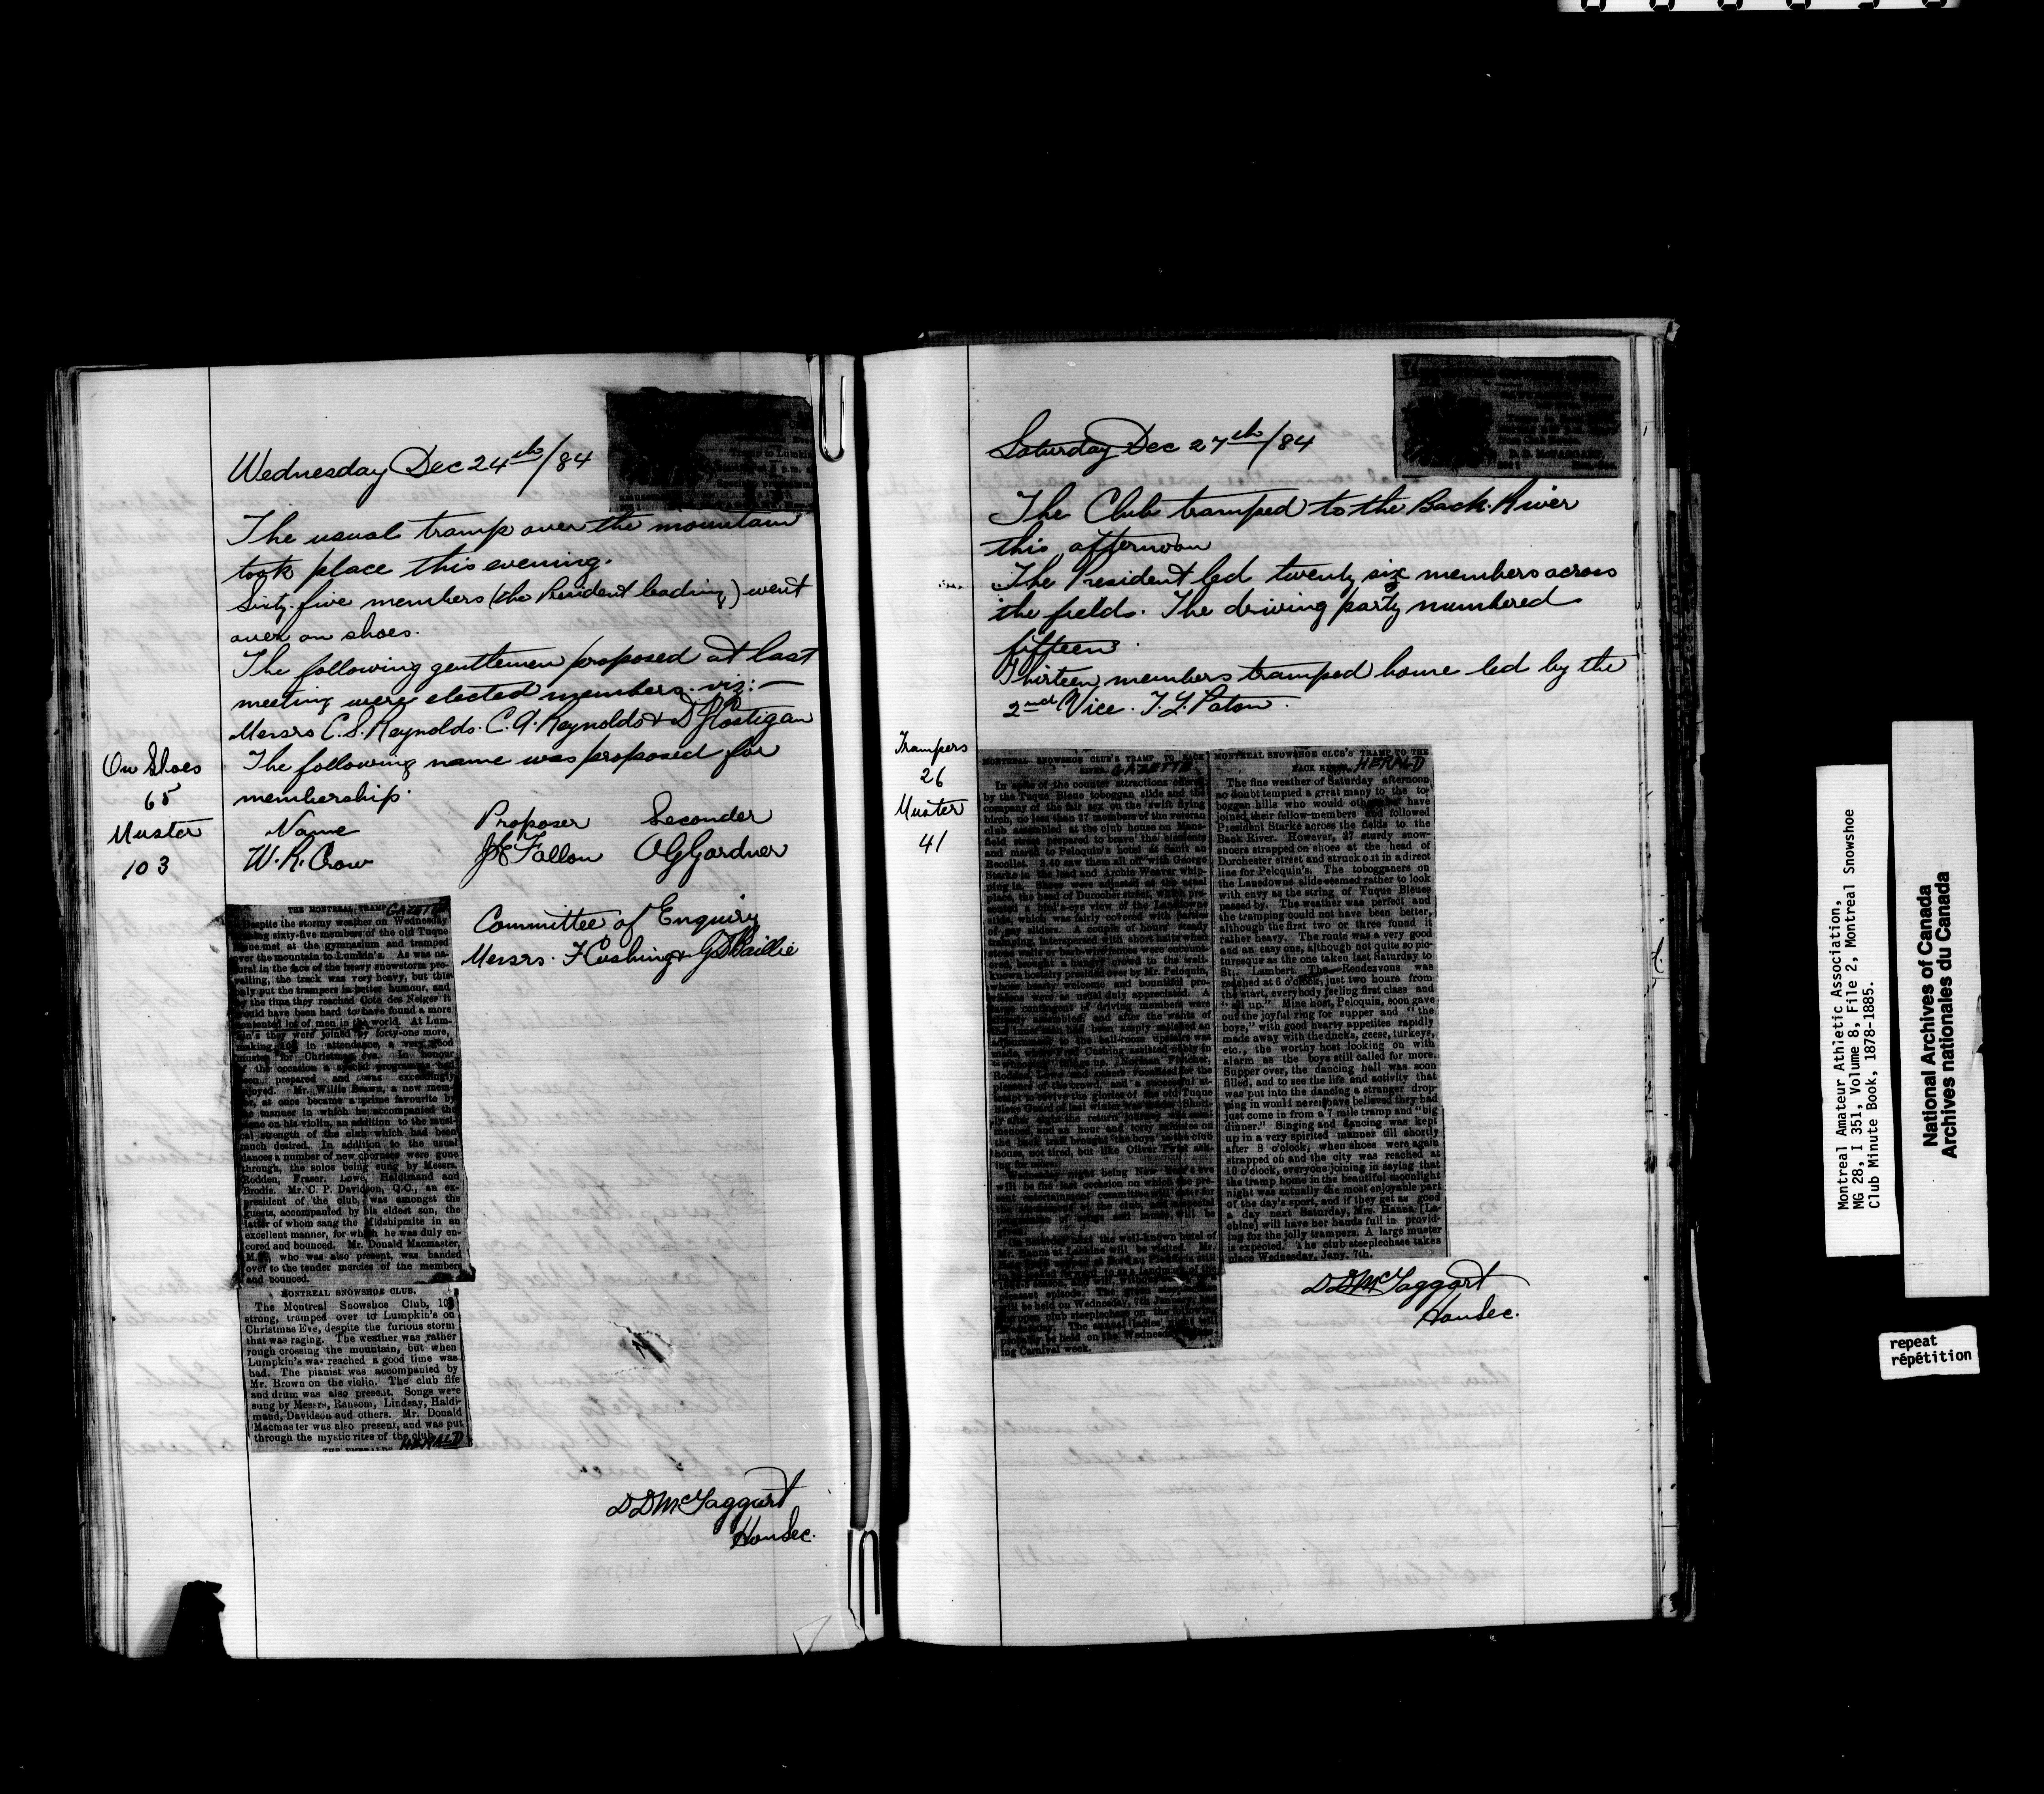 Wednesday Dec 24th/84
Tramp to Lumkin
The usual tramp over the mountain
took place this evening.
Sixty-five members (the President leading) went
over on shoes.
The following gentlemen proposed at last
meeting were elected members. viz:—
Messrs C. S. Reynolds. C. A. Reynolds & D J Costigan
The following name was proposed for
membership.
On Shoes
65
Muster
103
Name Proposer Seconder
W. R. Crow Fallon Gardner
Committee of Enquiry
Messrs. F Cushing & G D Baillie
THE MONTREAL TRAMP GAZETTE
Despite the stormy weather on Wednesday
sixty-five members of the old Tuque
Bleue met at the gymnasium and tramped
over the mountain to Lumkin's. As was na-
tural in the face of the heavy snowstorm pre-
vailing, the track was very heavy, but this
only put the trampers in better humour, and
by the time they reached Cote des Neiges it
would have been hard to have found a more
contented lot of men in the world. At Lum-
kin's they were joined by forty-one more,
making 103 in attendance, a very good
muster for Christmas eve. In honour
of the occasion a special programme had
been prepared and was exceedingly
enjoyed. Mr. Willie Brown, a new mem-
ber, at once became a prime favourite by
the manner in which he accompanied the
piano on his violin, an addition to the musi-
cal strength of the club which had been
much desired. In addition to the usual
dances a number of new choruses were gone
through, the solos being sung by Messrs.
Rodden, Fraser, Lowe, Haldimand and
Brodie. Mr. C. P. Davidson, Q.C., an ex-
president of the club, was amongst the
guests, accompanied by his eldest son, the
latter of whom sang the Midshipmite in an
excellent manner, for which he was duly en-
cored and bounced. Mr. Donald Macmaster,
M.P., who was also present, was handed
over to the tender mercies of the members
and bounced.
MONTREAL SNOWSHOE CLUB.
The Montreal Snowshoe Club, 103
strong, tramped over to Lumpkin's on
Christmas Eve, despite the furious storm
that was raging. The weather was rather
rough crossing the mountain, but when
Lumpkin's was reached a good time was
had. The pianist was accompanied by
Mr. Brown on the violin. The club fife
and drum was also present. Songs were
sung by Messrs, Ransom, Lindsay, Haldi-
mand, Davidson and others. Mr. Donald
Macmaster was also present, and was put
through the mystic rites of the club.
THE EMERALDS HERALD
D D McTaggart
Hon Sec.
Saturday Dec 27th/84
D. D. McTAGGART,
The Club tramped to the Back River
this afternoon
The President led twenty six members across
the fields. The driving party numbered
fifteen.
Thirteen members tramped home led by the
2nd Vice. T. L. Paton.
Trampers
26
Muster
41
MONTREAL SNOWSHOE CLUB'S TRAMP TO BACK
RIVER. GAZETTE
In spite of the counter attractions offered
by the Tuque Bleue toboggan slide and the
company of the fair sex on the swift flying
birch, no less than 27 members of the veteran
club assembled at the club house on Mans-
field street prepared to brave the elements
and march to Peloquin's hotel at Sault au
Recollet. 3.40 saw them all off with George
Starke in the lead and Archie Weaver whip-
ping in. Shoes were adjusted at the usual
place, the head of Durocher street, which pre-
sented a bird's-eye view of the Lansdowne
slide, which was fairly covered with parties
of gay sliders. A couple of hours' steady
tramping, interspersed with short halts when
stone walls or barb-wire fences were encount-
ered, brought a hungry crowd to the well-
known hostelry presided over by Mr. Peloquin,
whose hearty welcome and bountiful pro-
visions were as usual duly appreciated. A
large contingent of driving members were
already assembled, and after the wants of
the inner man had been amply satisfied an
adjournment to the ball-room upstairs was
made, where Fred Cushing assisted nobly in
Norman Fletcher,
Rodden, Lowe and others vocalised for the
pleasure of the crowd, and a successful at-
tempt to revive the glories of the old Tuque
Bleue Guard of last winter was made. Short-
ly after 8 the return journey was com-
menced, and an hour and forty minutes on
the back trail brought "the boys" to the club
house, not tired, but like Oliver Twist ask-
ing for more.
Wednesday night being New Year's eve
will be the last occasion on which the pre-
sent entertainment committee will cater for
the amusement of the club, and a special
programme of songs and music will be
On Saturday next the well-known hotel of
Mrs. Hanna at Lachine will be visited. Mr.
pleasant episode. The
will be held on Wednesday, 7th January, and
the open club steeplechase on the following
The annual ladies' will
probably be held on the Wednesday preced-
ing Carnival week.
MONTREAL SNOWSHOE CLUB'S TRAMP TO THE
BACK RIVER. HERALD
The fine weather of Saturday afternoon
no doubt tempted a great many to the to-
boggan hills who would otherwise have
joined their fellow-members and followed
President Starke across the fields to the
Back River. However, 27 sturdy snow-
shoers strapped on shoes at the head of
Dorchester street and struck out in a direct
line for Pelcquin's. The tobogganers on
the Lansdowne slide seemed rather to look
with envy as the string of Tuque Bleues
passed by. The weather was perfect and
the tramping could not have been better,
although the first two or three found it
rather heavy. The route was a very good
and an easy one, although not quite so pic-
turesque as the one taken last Saturday to
St. Lambert. The Rendezvous was
reached at 6 o'clock, just two hours from
the start, everybody feeling first class and
"all up." Mine host, Peloquin, soon gave
out the joyful ring for supper and "the
boys," with good hearty appetites rapidly
made away with the ducks, geese, turkeys,
etc., the worthy host looking on with
alarm as the boys still called for more.
Supper over, the dancing hall was soon
filled, and to see the life and activity that
was put into the dancing a stranger drop-
ping in would never have believed they had
just come in from a 7 mile tramp and "big
dinner." Singing and dancing was kept
up in a very spirited manner till shortly
after 8 o'clock, when shoes were again
strapped on and the city was reached at
10 o'clock, everyone joining in saying that
the tramp home in the beautiful moonlight
night was actually the most enjoyable part
of the day's sport, and if they get as good
a day next Saturday, Mrs. Hanna [La-
chine] will have her hands full in provid-
ing for the jolly trampers. A large muster
is expected. The club steeplechase takes
place Wednesday, Jany. 7th.
D D McTaggart
Hon Sec.
Montreal Amateur Athletic Association,
MG 28, I 351, Volume 8, File 2, Montreal Snowshoe
Club Minute Book, 1878-1885.
National Archives of Canada
Archives nationales du Canada
repeat
répétition